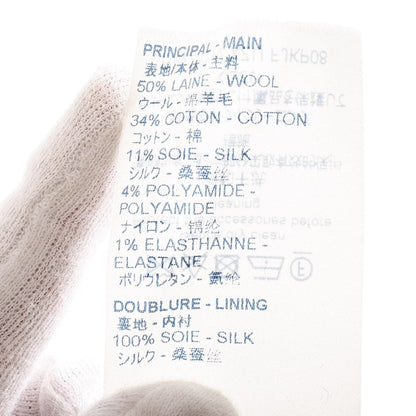 PRINCIPAL - MAIN
表地/本体 - 主料
50% LAINE - WOOL
ウール - 绵羊毛
34% COTON - COTTON
コットン - 棉
11% SOIE - SILK
シルク - 桑蚕丝
4% POLYAMIDE -
POLYAMIDE
ナイロン - 锦纶
1% ELASTHANNE -
ELASTANE
ポリウレタン - 氨纶
DOUBLURE - LINING
裏地 - 内衬
100% SOIE - SILK
シルク - 桑蚕丝